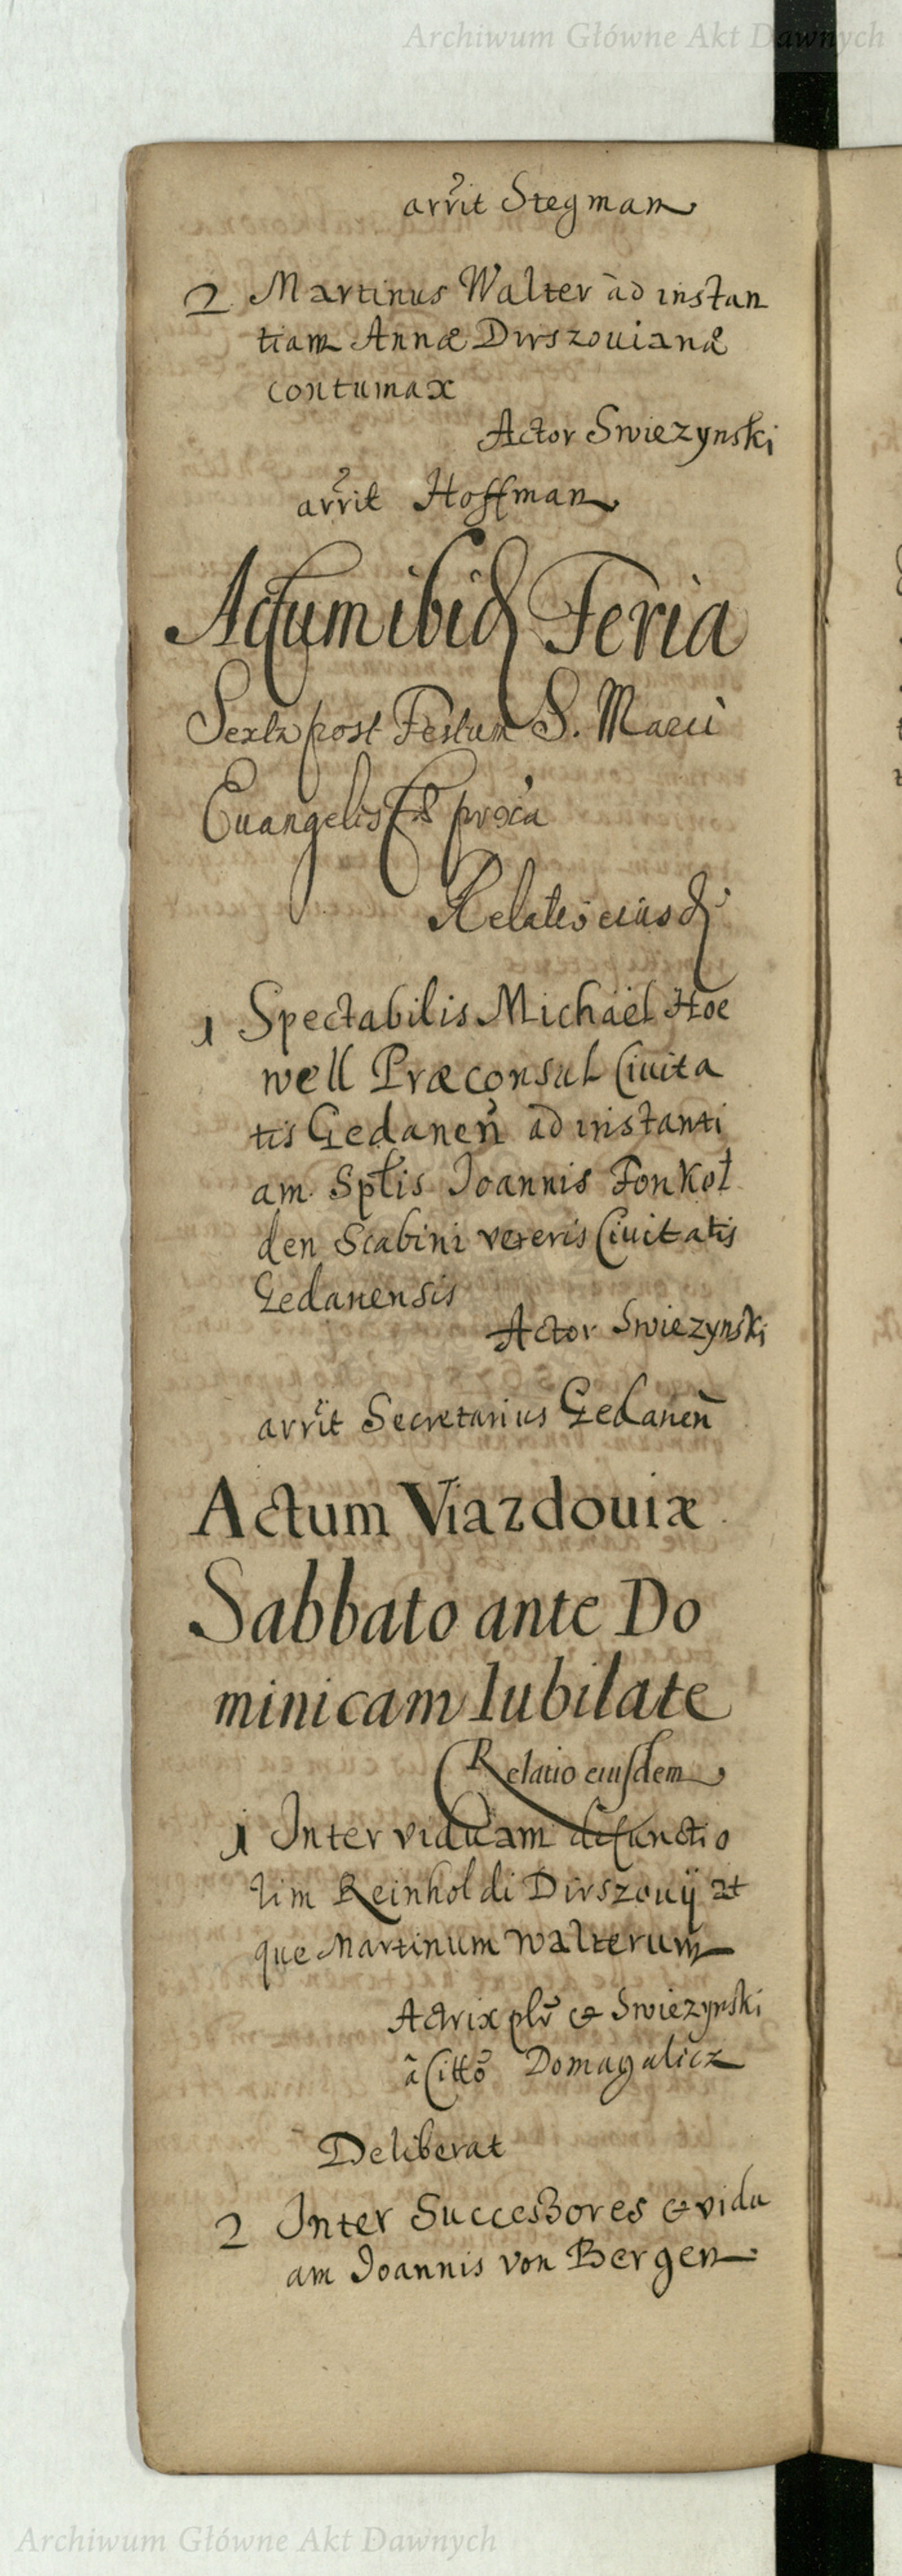 Archiwum Główne Akt Dawnych
arrit Stegman
2 Martinus Walter ad instan
tiam Annæ Dirszouianæ
contumax
Actor Swiezynski
arrit Hoffman
Actum ibid Feria
Sexta post Festum S. Marci
Euangelistæ proxa
Relatio eiusd
1 Spectabilis Michaël Hoe
well Præconsul Ciuita
tis Gedaneñ ad instanti
am Sptlis Joannis Fonkol
den Scabini veteris Ciuitatis
Gedanensis
Actor Swiezynski
arrit Secretarius Gedaneñ
Actum Viazdouiæ
Sabbato ante Do
minicam Iubilate
Relatio eiusdem
1 Inter viduam defuncti o
lim Reinholdi Dirszouij at
que Martinum Walterum
Actrix plr & Swiezynski
à Citto Domagalicz
Deliberat
2 Inter Successores & vidu
am Joannis von Bergen
Archiwum Główne Akt Dawnych